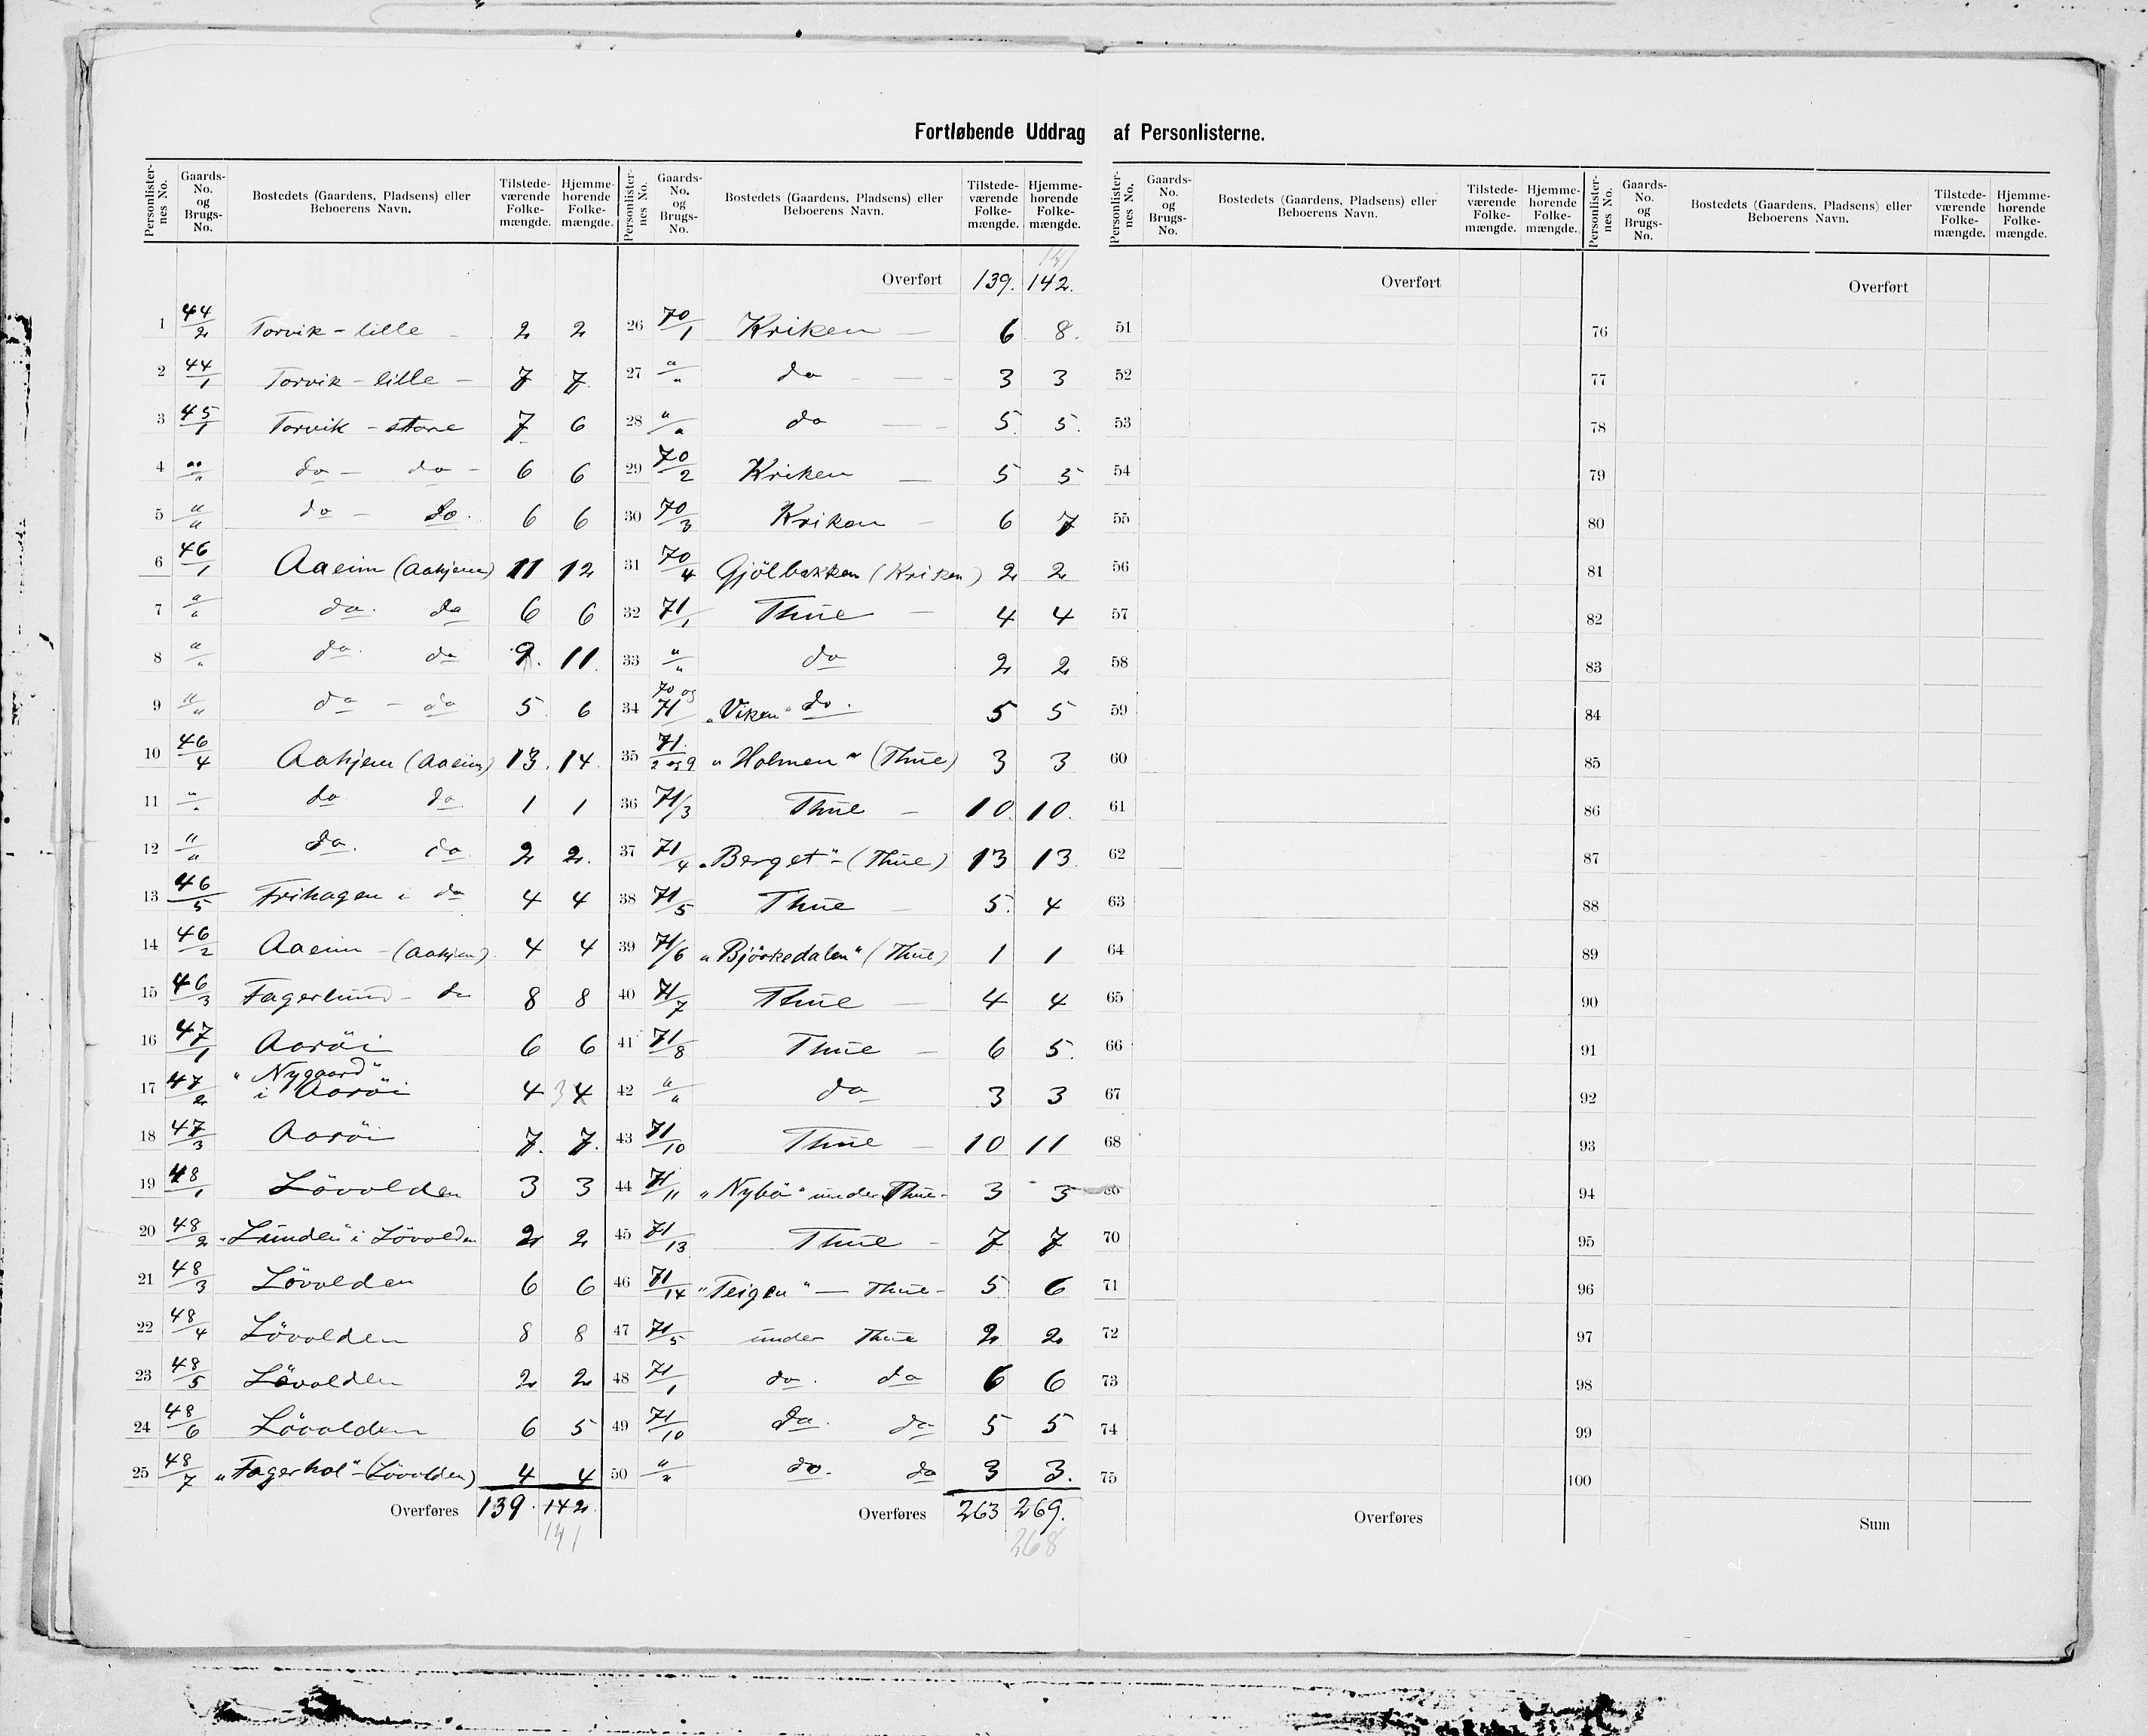 Fortløbende Uddrag af Personlisterne.
Personlister-nes No. Gaards-No. og Brugs-No. Bostedets (Gaardens, Pladsens) eller Beboerens Navn. Tilstede-værende Folke-mængde. Hjemme-hørende Folke-mængde.
1 44/2 Torvik - lille - 2 2
2 44/1 Torvik - lille - 7 7
3 45/1 Torvik - store 7 6
4 "/" do - do - 6 6
5 "/" do - do. 6 6
6 46/1 Aaeim (Aahjem) 11 12
7 "/" do. do 6 6
8 "/" do. do 9. 11
9 "/" do - do 5 6
10 46/4 Aahjem (Aaeim) 13. 14
11 "/" do do 1 1
12 "/" do. do 2 2.
13 46/5 Frihagen i do 4 4
14 46/2 Aaeim - (Aahjem) 4 4
15 46/3 Fagerlund - do 8 8
16 47/1 Aaröi 6 6
17 47/2 "Nygaard" i Aaröi 4 3 4
18 47/3 Aaröi 7. 7.
19 48/1 Lövolden 3 3
20 48/2 "Lunden" i Lövolden 2 2
21 48/3 Lövolden 6 6
22 48/4 Lövolden 8 8
23 48/5 Lövolden 2 2
24 48/6 Lövolden 6 5
25 48/7 "Fagerhol" - (Lövolden) 4 4
Overføres 139. 142.
141
Personlister-nes No. Gaards-No. og Brugs-No. Bostedets (Gaardens, Pladsens) eller Beboerens Navn. Tilstede-værende Folke-mængde. Hjemme-hørende Folke-mængde.
141
Overført 139. 142.
26 70/1 Kriken - 6 8.
27 "/" do - - - 3 3
28 "/" do - - 5. 5.
29 70/2 Kriken - 5 5
30 70/3 Kriken - 6 7
31 70/4 Gjölbakken (Kriken) 2 2
32 71/1 Thue - 4 4
33 "/" do 2 2
34 70 og 71 "Viken" do. 5 5
35 71/2 og 9 "Holmen" (Thue) 3 3
36 71/3 Thue - 10. 10.
37 71/4 "Berget" - (Thue) 13 13
38 71/5 Thue - 5. 4
39 71/6 "Björkedalen" (Thue) 1 1
40 71/7 Thue - 4 4
41 71/8 Thue - 6 5.
42 "/" do 3 3
43 71/10 Thue - 10 11
44 71/11 "Nybö" under Thue - 3 3
45 71/13 Thue - 7 7
46 71/14 "Teigen" - Thue - 5 6
47 71/5 under Thue 2 2
48 71/1 do. do 6 6
49 71/10 do. do 5 5
50 "/" do. do 3 3.
Overføres 263 269.
268
Personlister-nes No. Gaards-No. og Brugs-No. Bostedets (Gaardens, Pladsens) eller Beboerens Navn. Tilstede-værende Folke-mængde. Hjemme-hørende Folke-mængde.
Overført
51
52
53
54
55
56
57
58
59
60
61
62
63
64
65
66
67
68
70
71
72
73
74
75
Overføres
Personlister-nes No. Gaards-No. og Brugs-No. Bostedets (Gaardens, Pladsens) eller Beboerens Navn. Tilstede-værende Folke-mængde. Hjemme-hørende Folke-mængde.
Overført
76
77
78
79
80
81
82
83
84
85
86
87
88
89
90
91
92
93
94
95
96
97
98
99
100
Sum